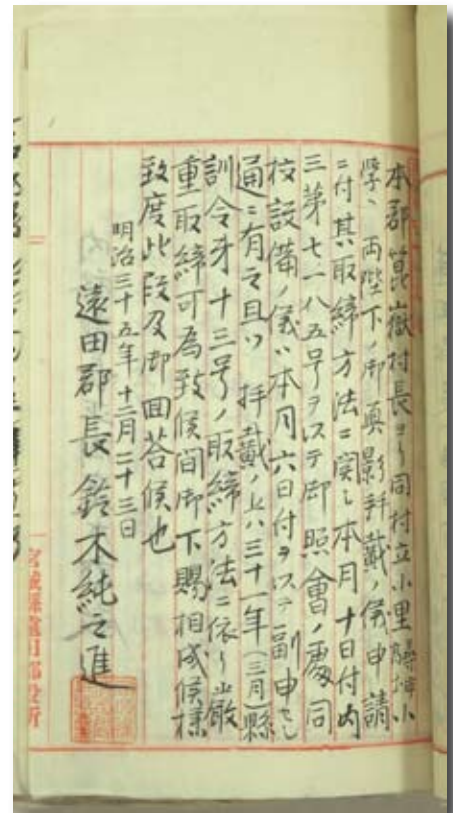 本郡箆嶽村長ヨリ同村立小里尋常小
學ヘ両陛下ノ御真影拝戴ノ儀申請
ニ付其取締方法ニ関シ本月十日付内
三第七一八五号ヲ以テ御照會ノ處同
校設備ノ儀ハ本月六日付ヲ以テ副申セシ
通ニ有之且ツ拝戴ノ上ハ三十一年(三月)縣
訓令第十三号ノ取締方法ニ依リ嚴
重取締可為致候間御下賜相成候様
致度此段及御回答候也
明治三十五年十二月二十三日
遠田郡長鈴木純之進
宮城縣遠田郡役所